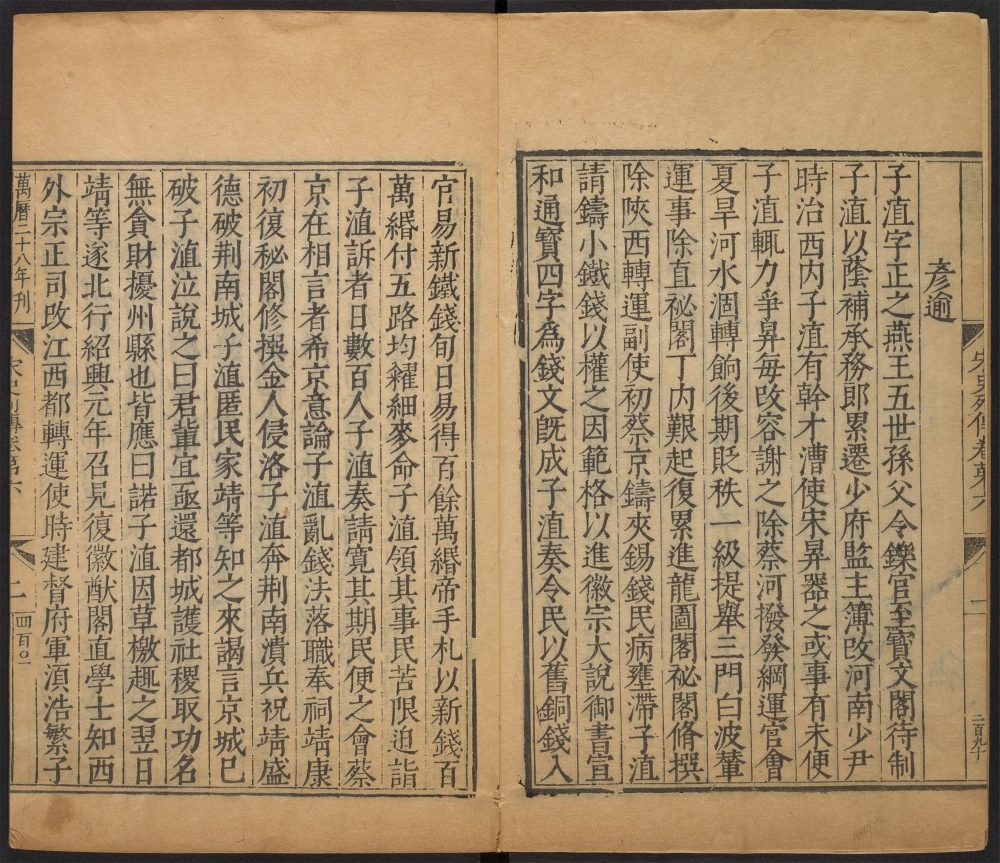 彥逾
子㴶字正之燕王五世孫父令鑠官至寶文閣待制
子㴶以蔭補承務郎累遷少府監主簿改河南少尹
時治西內子㴶有幹才漕使宋昇器之或事有未便
子㴶輒力爭昇每改容謝之除蔡河撥發綱運官會
夏旱河水涸轉餉後期貶秩一級提舉三門白波輦
運事除直祕閣丁內艱起復累進龍圖閣祕閣脩撰
除陝西轉運副使初蔡京鑄夾錫錢民病壅滯子㴶
請鑄小鐵錢以權之因範格以進徽宗大說御書宣
和通寶四字爲錢文旣成子㴶奏令民以舊銅錢入
二百九十
官易新鐵錢旬日易得百餘萬緡帝手札以新錢百
萬緡付五路均糴細麥命子㴶領其事民苦限迫詣
子㴶訴者日數百人子㴶奏請寬其期民便之會蔡
京在相言者希京意論子㴶亂錢法落職奉祠靖康
初復秘閣修撰金人侵洛子㴶奔荆南潰兵祝靖盛
德破荆南城子㴶匿民家靖等知之來謁言京城已
破子㴶泣說之曰君輩宜亟還都城護社稷取功名
無貪財擾州縣也皆應曰諾子㴶因草檄趣之翌日
靖等遂北行紹興元年召見復徽猷閣直學士知西
外宗正司改江西都轉運使時建督府軍湏浩繁子
萬曆二十八年刊
宋史列傳卷第六
二
四百〇一